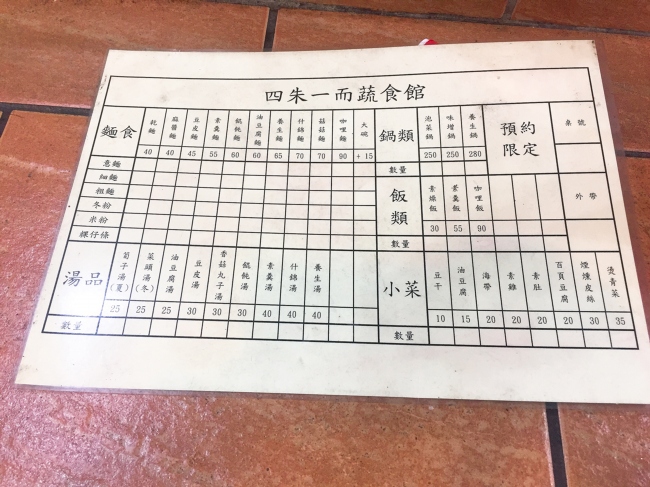 四朱一而蔬食館
麵食 乾麵 麻醬麵 豆皮麵 素羹麵 餛飩麵 油豆腐麵 養生麵 什錦麵 菇菇麵 咖哩麵 大碗
40 40 45 55 60 60 65 70 70 90 +15
意麵
細麵
粗麵
冬粉
米粉
粿仔條
湯品 筍子湯(夏) 菜頭湯(冬) 油豆腐湯 豆皮湯 香菇丸子湯 餛飩湯 素羹湯 什錦湯 養生湯
25 25 25 30 30 30 40 40 40
數量
鍋類 泡菜鍋 味增鍋 養生鍋
250 250 280
數量
預約限定
桌號
飯類 素燥飯 素羹飯 咖哩飯
30 55 90
數量
外帶
小菜 豆干 油豆腐 海帶 素雞 素肚 百頁豆腐 煙燻皮絲 燙青菜
10 15 20 20 20 20 30 35
數量